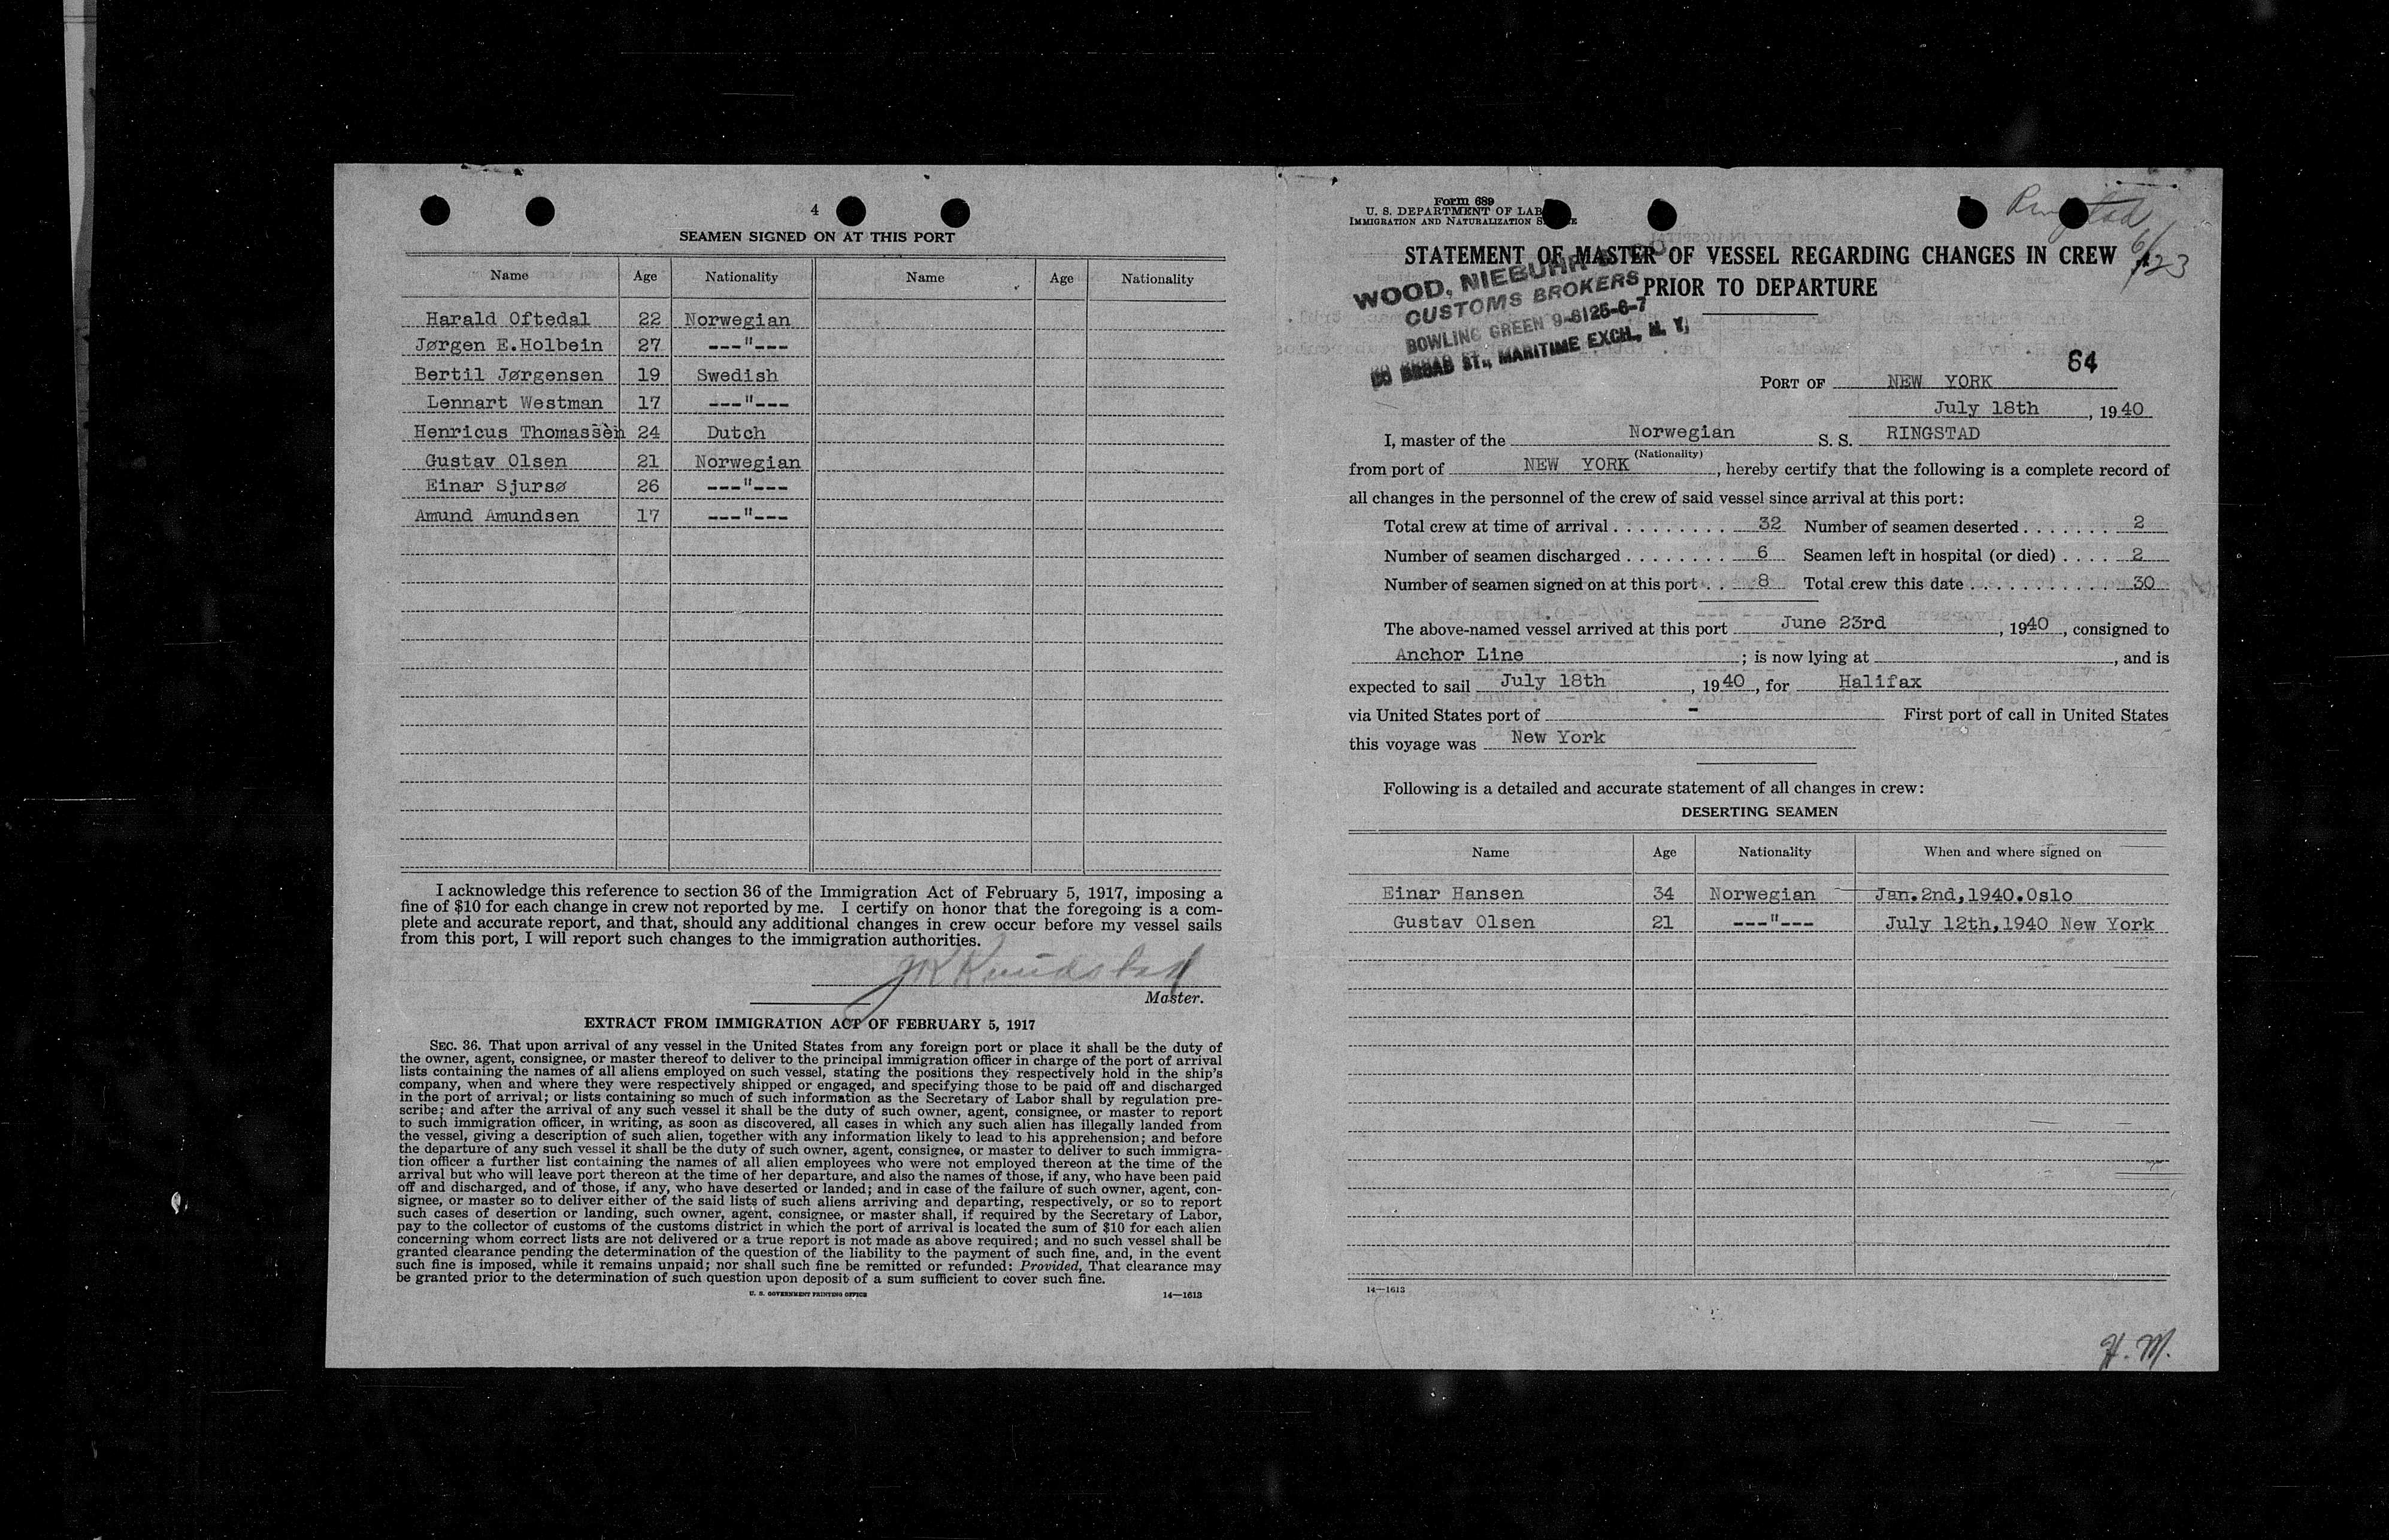 4
SEAMEN SIGNED ON AT THIS PORT
Name Age Nationality Name Age Nationality
Harald Oftedal 22 Norwegian
Jørgen E.Holbein 27 ---"---
Bertil Jørgensen 19 Swedish
Lennart Westman 17 ---"---
Henricus Thomassen 24 Dutch
Gustav Olsen 21 Norwegian
Einar Sjursø 26 ---"---
Amund Amundsen 17 ---"---
I acknowledge this reference to section 36 of the Immigration Act of February 5, 1917, imposing a
fine of $10 for each change in crew not reported by me. I certify on honor that the foregoing is a com-
plete and accurate report, and that, should any additional changes in crew occur before my vessel sails
from this port, I will report such changes to the immigration authorities.
Master.
EXTRACT FROM IMMIGRATION ACT OF FEBRUARY 5, 1917
SEC. 36. That upon arrival of any vessel in the United States from any foreign port or place it shall be the duty of
the owner, agent, consignee, or master thereof to deliver to the principal immigration officer in charge of the port of arrival
lists containing the names of all aliens employed on such vessel, stating the positions they respectively hold in the ship's
company, when and where they were respectively shipped or engaged, and specifying those to be paid off and discharged
in the port of arrival; or lists containing so much of such information as the Secretary of Labor shall by regulation pre-
scribe; and after the arrival of any such vessel it shall be the duty of such owner, agent, consignee, or master to report
to such immigration officer, in writing, as soon as discovered, all cases in which any such alien has illegally landed from
the vessel, giving a description of such alien, together with any information likely to lead to his apprehension; and before
the departure of any such vessel it shall be the duty of such owner, agent, consignee, or master to deliver to such immigra-
tion officer a further list containing the names of all alien employees who were not employed thereon at the time of the
arrival but who will leave port thereon at the time of her departure, and also the names of those, if any, who have been paid
off and discharged, and of those, if any, who have deserted or landed; and in case of the failure of such owner, agent, con-
signee, or master so to deliver either of the said lists of such aliens arriving and departing, respectively, or so to report
such cases of desertion or landing, such owner, agent, consignee, or master shall, if required by the Secretary of Labor,
pay to the collector of customs of the customs district in which the port of arrival is located the sum of $10 for each alien
concerning whom correct lists are not delivered or a true report is not made as above required; and no such vessel shall be
granted clearance pending the determination of the question of the liability to the payment of such fine, and, in the event
such fine is imposed, while it remains unpaid; nor shall such fine be remitted or refunded: Provided, That clearance may
be granted prior to the determination of such question upon deposit of a sum sufficient to cover such fine.
U. S. GOVERNMENT PRINTING OFFICE 14—1613
Form 689
U. S. DEPARTMENT OF LAB
IMMIGRATION AND NATURALIZATION S E
Ringstad
6/23
STATEMENT OF MASTER OF VESSEL REGARDING CHANGES IN CREW
PRIOR TO DEPARTURE
WOOD, NIEBUHR
CUSTOMS BROKERS
BOWLING GREEN 9-6125-6-7
BROAD ST., MARITIME EXCH., N. Y.
64
PORT OF NEW YORK
July 18th, 1940
I, master of the Norwegian S. S. RINGSTAD
(Nationality)
from port of NEW YORK, hereby certify that the following is a complete record of
all changes in the personnel of the crew of said vessel since arrival at this port:
Total crew at time of arrival . . . . . . . . . 32 Number of seamen deserted . . . . . . . 2
Number of seamen discharged . . . . . . . . 6 Seamen left in hospital (or died) . . . . 2
Number of seamen signed on at this port . . 8 Total crew this date . . . . . . . . . . . 30
The above-named vessel arrived at this port June 23rd, 1940, consigned to
Anchor Line; is now lying at , and is
expected to sail July 18th, 1940, for Halifax
via United States port of - First port of call in United States
this voyage was New York
Following is a detailed and accurate statement of all changes in crew:
DESERTING SEAMEN
Name Age Nationality When and where signed on
Einar Hansen 34 Norwegian Jan.2nd,1940.Oslo
Gustav Olsen 21 ---"--- July 12th,1940 New York
14—1613
H. M.